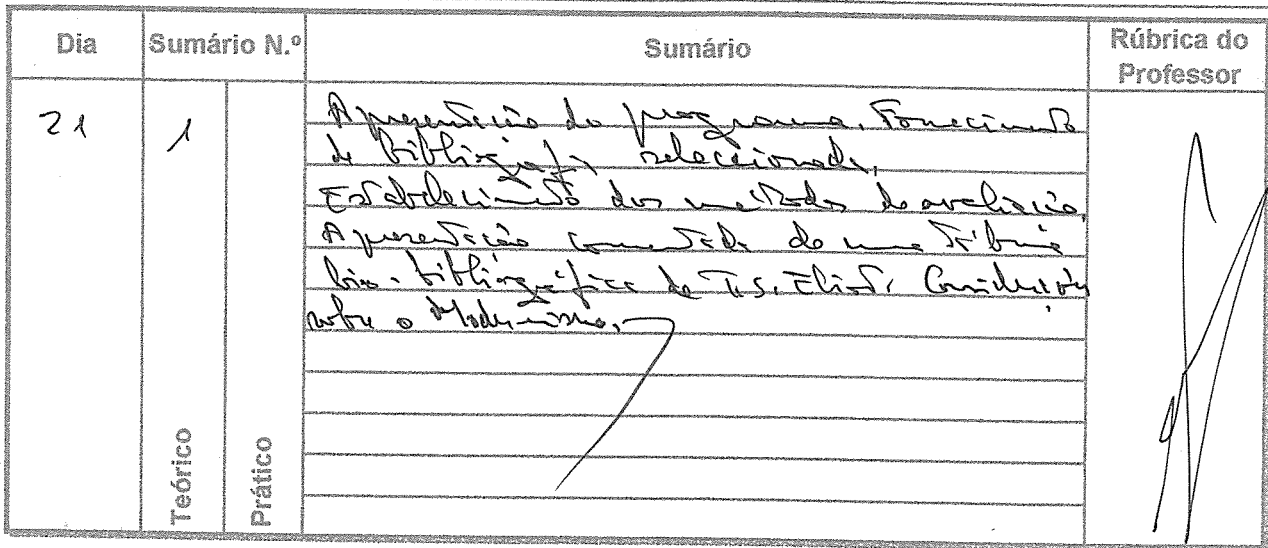 Dia
Sumário N.º
Sumário
Rúbrica do
Professor
21
1
Apresentação do programa. Fornecimento
de bibliografia seleccionada.
Estabelecimento dos métodos de avaliação.
Apresentação comentada de uma tábua
bio-bibliográfica de T.S. Eliot. Considerações
sobre o Modernismo.
Teórico
Prático